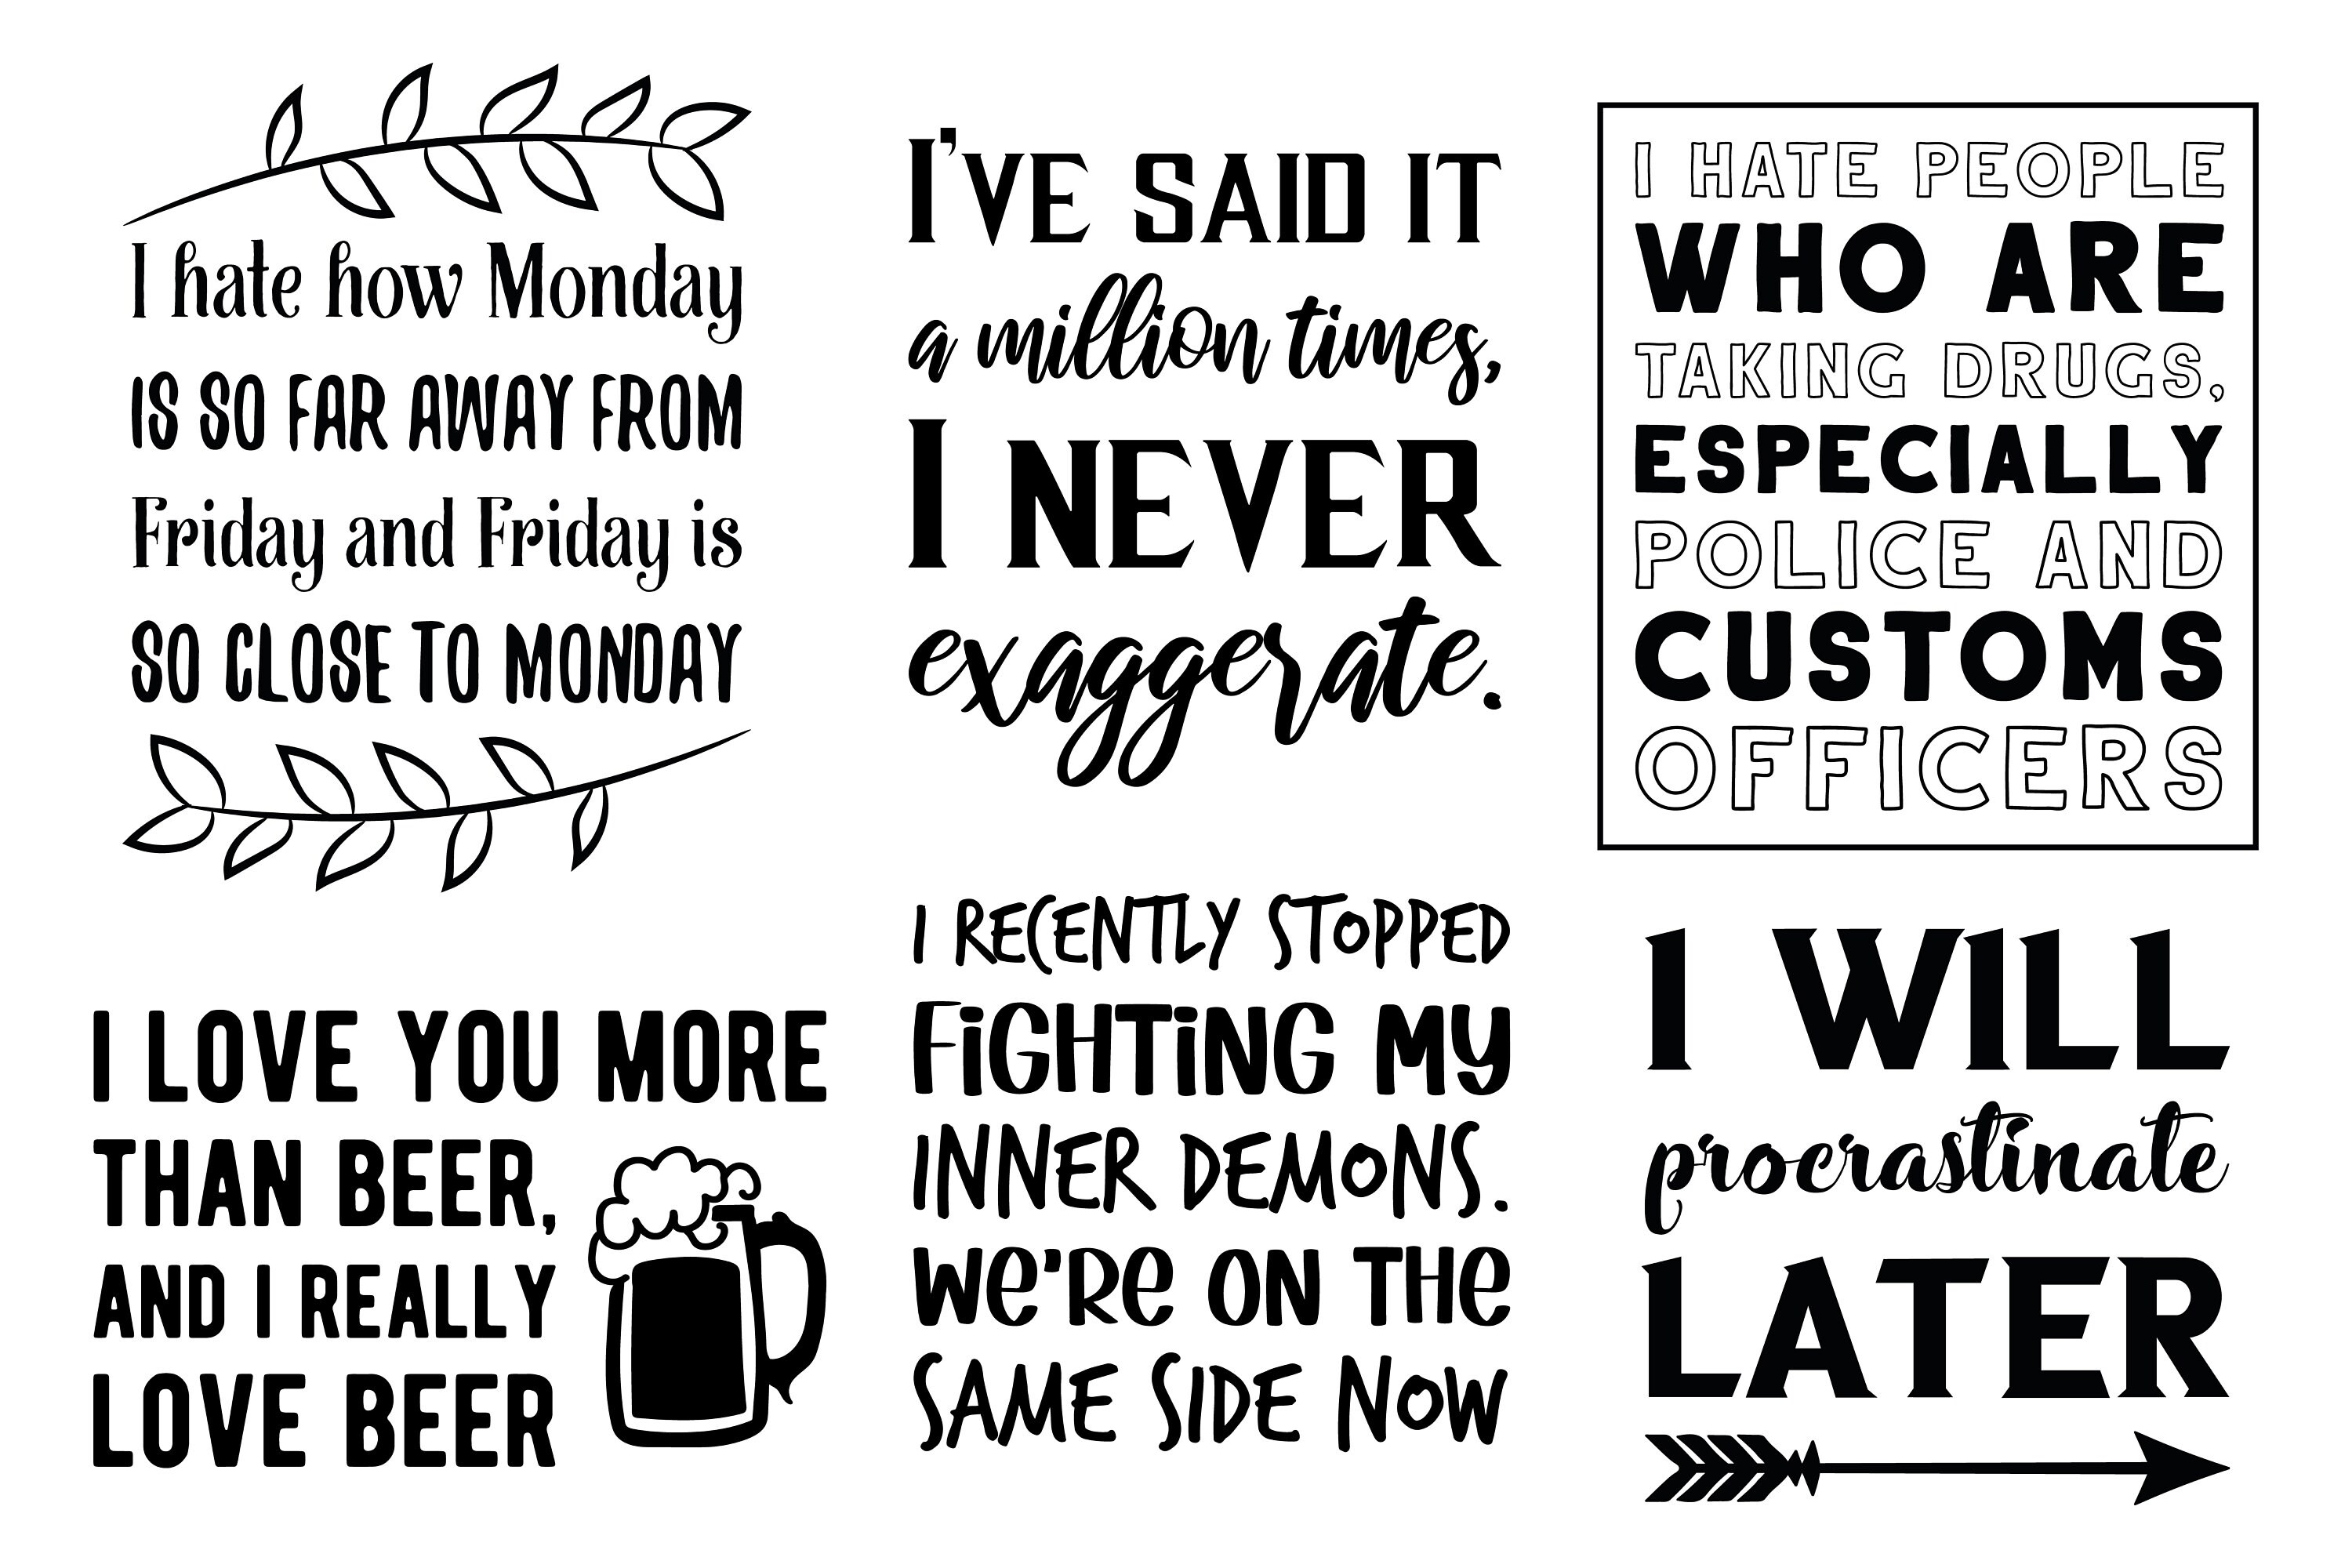 I hate how Monday
IS SO FAR AWAY FROM
Friday and Friday is
SO CLOSE TO MONDAY
I'VE SAID IT
a million times,
I NEVER
exaggerate.
I HATE PEOPLE
WHO ARE
TAKING DRUGS,
ESPECIALLY
POLICE AND
CUSTOMS
OFFICERS
I LOVE YOU MORE
THAN BEER,
AND I REALLY
LOVE BEER
I RECENTLY STOPPED
FiGHTiNG MY
INNER DEMONS.
We'Re ON THe
SAME SIDE NOW
I WILL
procrastinate
LATER